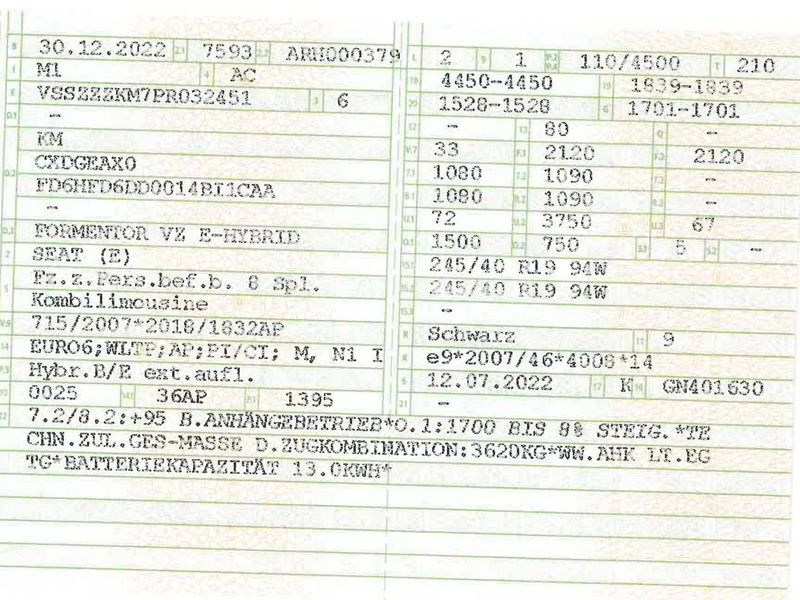 B 30.12.2022 2.1 7593 2.2 ARH000379
J M1 4 AC
E VSSZZZKM7PR032451 3 6
D.1 -
D.2 KM
CXDGEAX0
FD6HFD6DD0014BI1CAA
-
D.3 FORMENTOR VZ E-HYBRID
2 SEAT (E)
5 Fz.z.Pers.bef.b. 8 Spl.
Kombilimousine
V.9 715/2007*2018/1832AP
14 EURO6;WLTP;AP;PI/CI; M, N1 I
P.3 Hybr.B/E ext.aufl.
10 0025 14.1 36AP P.1 1395
L 2 9 1 P.2 P.4 110/4500 T 210
18 4450-4450 19 1839-1839
20 1528-1528 G 1701-1701
12 - 13 80 Q -
V.7 33 F.1 2120 F.2 2120
7.1 1080 7.2 1090 7.3 -
8.1 1080 8.2 1090 8.3 -
U.1 72 U.2 3750 U.3 67
O.1 1500 O.2 750 S.1 5 S.2 -
15.1 245/40 R19 94W
15.2 245/40 R19 94W
15.3 -
R Schwarz 11 9
K e9*2007/46*4008*14
6 12.07.2022 17 K 16 GN401630
21 -
22 7.2/8.2:+95 B.ANHÄNGEBETRIEB*O.1:1700 BIS 8% STEIG.*TE
CHN.ZUL.GES-MASSE D.ZUGKOMBINATION:3620KG*WW.AHK LT.EG
TG*BATTERIEKAPAZITÄT 13.0KWH*